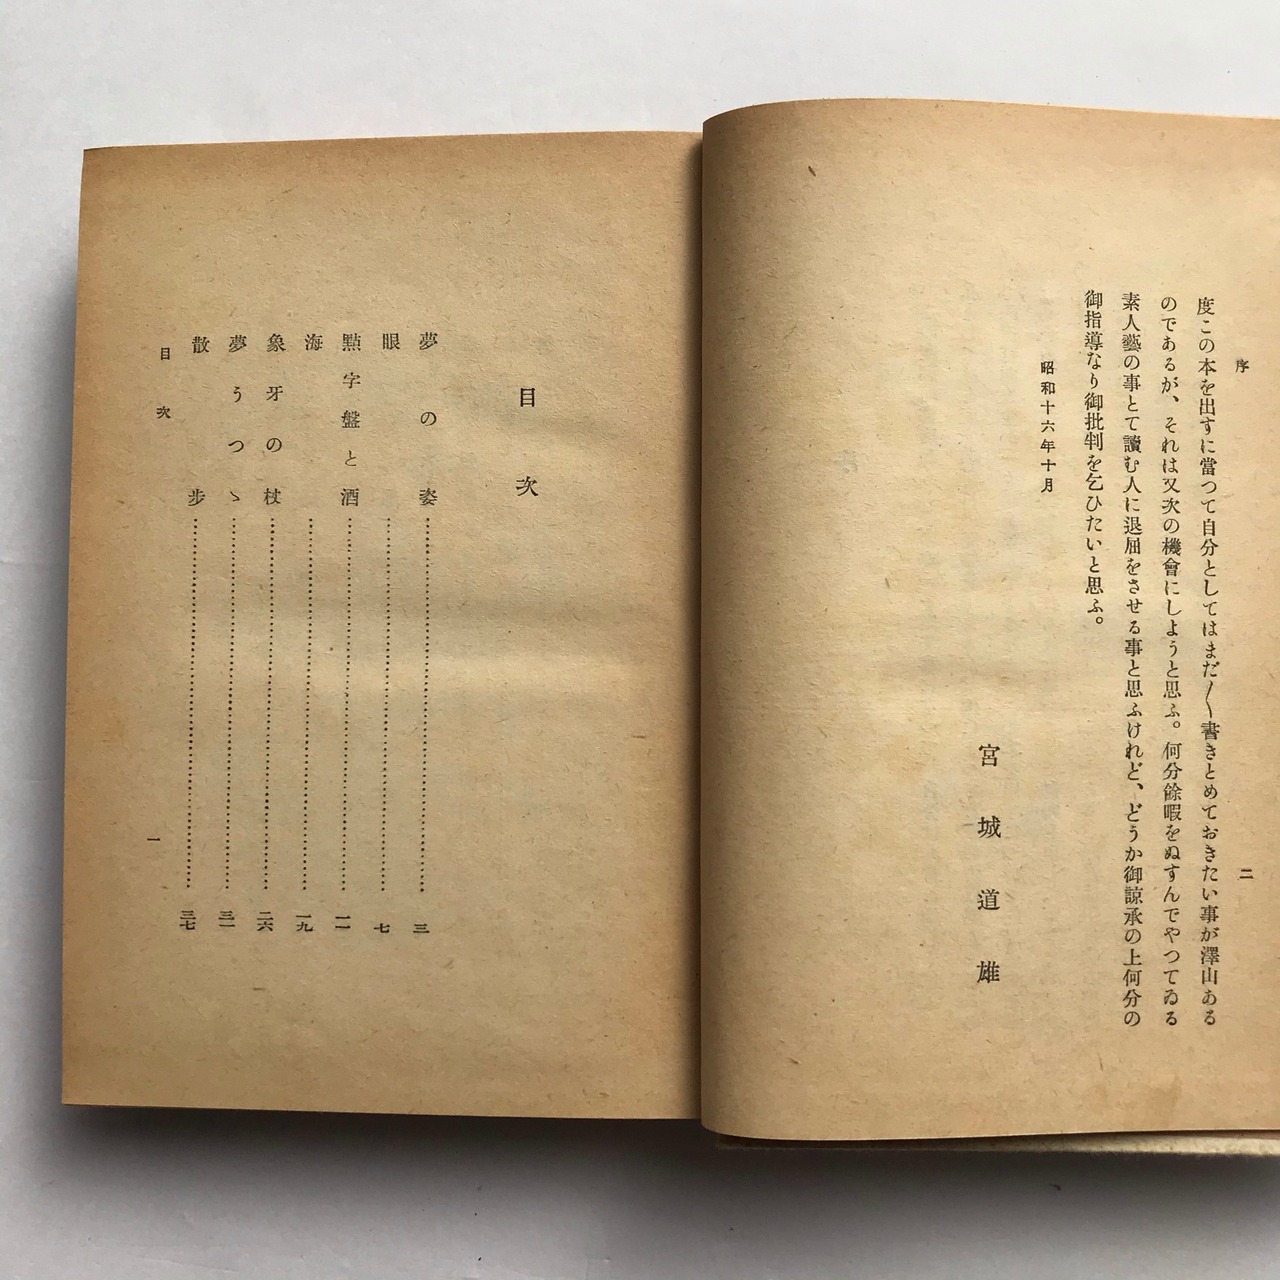 序
二
度この本を出すに當つて自分としてはまだ〳〵書きとめておきたい事が澤山ある
のであるが、それは又次の機會にしようと思ふ。何分餘暇をぬすんでやつてゐる
素人藝の事とて讀む人に退屈をさせる事と思ふけれど、どうか御諒承の上何分の
御指導なり御批判を乞ひたいと思ふ。
昭和十六年十月
宮城道雄
目次
夢の姿……三
眼……七
點字盤と酒……一一
海……一九
象牙の杖……二六
夢うつゝ……三一
散步……三七
目次
一